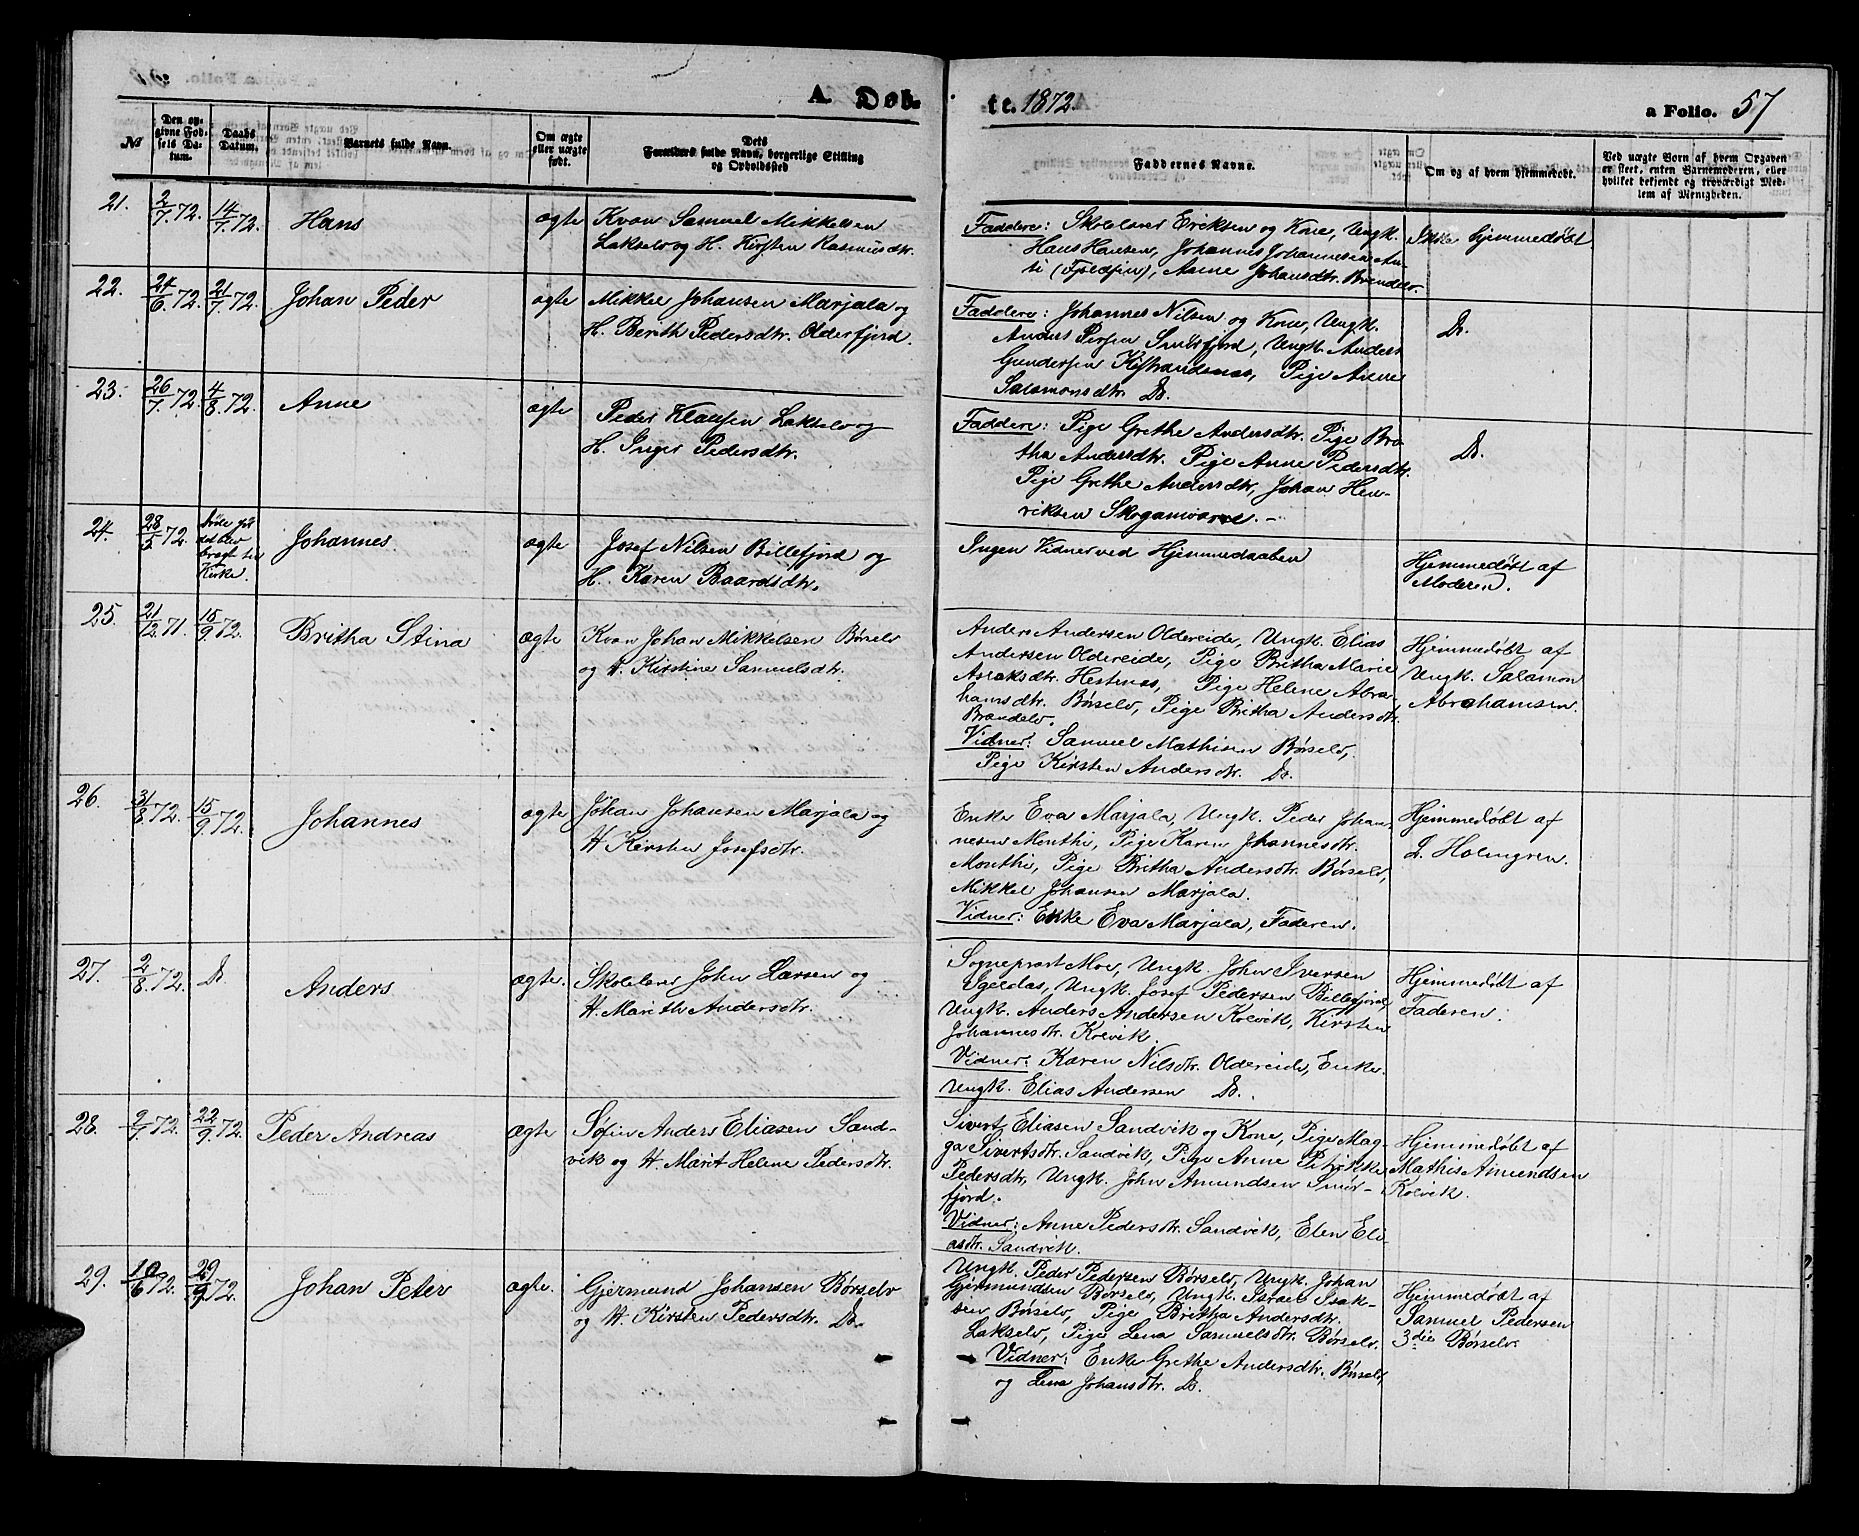 A. Døb- te. 1872. a Folio. 57
№
Den op-
givne Fød-
sels Da-
tum.
Daabs
Datum.
Barnets fulde Navn.
Om ægte
eller uægte
født.
Dets
Forældres fulde Navn, borgerlige Stilling
og Opholdssted
Faddernes Navne.
Om og af hvem hjemmedøbt.
Ved uægte Børn af hvem Opgaven
er skeet, enten Barnemoderen, eller
hvilket bekjendt og troværdigt Med-
lem af Menigheden.
21. 2/7.72. 14/7.72. Hans ægte
Kvæn Samuel Mikkelsen
Lakselv og H. Kirsten Rasmusdtr.
Faddere: Skolelærer Eriksen og Kone, Ungk.
Hans Hansen, Johannes Johannesen An-
ti (Fjeldfin), Anne Johansdtr. Brændelv.
Ikke hjemmedøbt
22. 24/6.72. 21/7.72. Johan Peder ægte
Mikkel Johansen Marjala og
H. Berith Pedersdtr. Olderfjord.
Faddere: Johannes Nilsen og Kone, Ungk.
Anders Persen Smørfjord, Ungk. Anders
Gundersen Kistrandsnæs, Pige Anne
Salamonsdtr. Do.
Do.
23. 26/7.72. 4/8.72. Anne ægte
Peder Klausen Lakselv og
H. Inger Pedersdtr.
Faddere: Pige Grethe Andersdtr. Pige Bri-
tha Andersdtr. Pige Anne Pedersdtr.
Pige Grethe Andersdtr, Johan Hen-
riksen Skoganvarre. -
Do.
24. 28/5.72. Døde før
det blev
bragt til
Kirke.
Johannes. ægte
Josef Nilsen Billefjord og
H. Karen Baardsdtr.
Ingen Vidner ved Hjemmedaaben
Hjemmedøbt af
Moderen.
25. 21/12.71. 15/9.72. Britha Stina ægte
Kvæn Johan Mikkelsen Børselv
og H. Kirstine Samuelsdtr.
Anders Andersen Oldereide, Ungk. Elias
Andersen Oldereide, Pige Britha Marie
Aslaksdtr. Hestenæs, Pige Helene Abra-
hamsdtr. Børselv, Pige Britha Andersdtr.
Brændelv.
Vidner: Samuel Mathisen Børselv,
Pige Kirsten Andersdtr. Do.
Hjemmedøbt af
Ungk. Salamon
Abrahamsen.
26. 31/8.72. 15/9.72. Johannes ægte
Johan Johansen Marjala og
H. Kirsten Josefsdtr.
Enke Eva Marjala, Ungk. Peder Johan-
nesen Monthi, Pige Karen Johannesdtr.
Monthi, Pige Britha Andersdtr. Børselv,
Mikkel Johansen Marjala.
Vidner: Enke Eva Marjala, Faderen.
Hjemmedøbt af
L. Holmgren.
27. 2/8.72. Do. Anders ægte.
Skolelærer John Larsen og
H. Marith Andersdtr.
Sogneprest Moe, Ungk. John Iversen
Igeldas, Ungk. Josef Pedersen Billefjord,
Ungk. Anders Andersen Kolvik, Kirsten
Johannesdtr. Kolvik.
Vidner: Karen Nilsdtr. Oldereide, Enke.
Ungk. Elias Andersen Do.
Hjemmedøbt af
Faderen.
28. 9/7.72. 22/9.72. Peder Andreas ægte
Søfin Anders Eliasen Sand-
vik og H. Marit Helene Pedersdtr.
Sivert Eliasen Sandvik og Kone, Pige Mag-
ga Sivertsdtr. Sandvik, Pige Anne Petrikke
Pedersdtr, Ungk. John Amundsen Smør-
fjord.
Vidner: Anne Pedersdtr. Sandvik, Elen Eli-
asdtr. Sandvik.
Hjemmedøbt af
Mathis Amundsen
Kolvik.
29. 10/6.72. 29/9.72. Johan Peter ægte.
Gjermund Johansen Børselv
og H. Kirsten Pedersdtr. Do.
Ungk. Peder Pedersen Børselv, Ungk. Johan
Gjermundsen Børselv, Ungk. Israel Isak-
sen Børselv, Pige Britha Andersdtr.
Lakselv, Pige Lena Samuelsdtr. Børselv.
Vidner: Enke Grethe Andersdtr. Børselv,
og Lena Johansdtr. Do.
Hjemmedøbt af
Samuel Pedersen
3die Børselv.